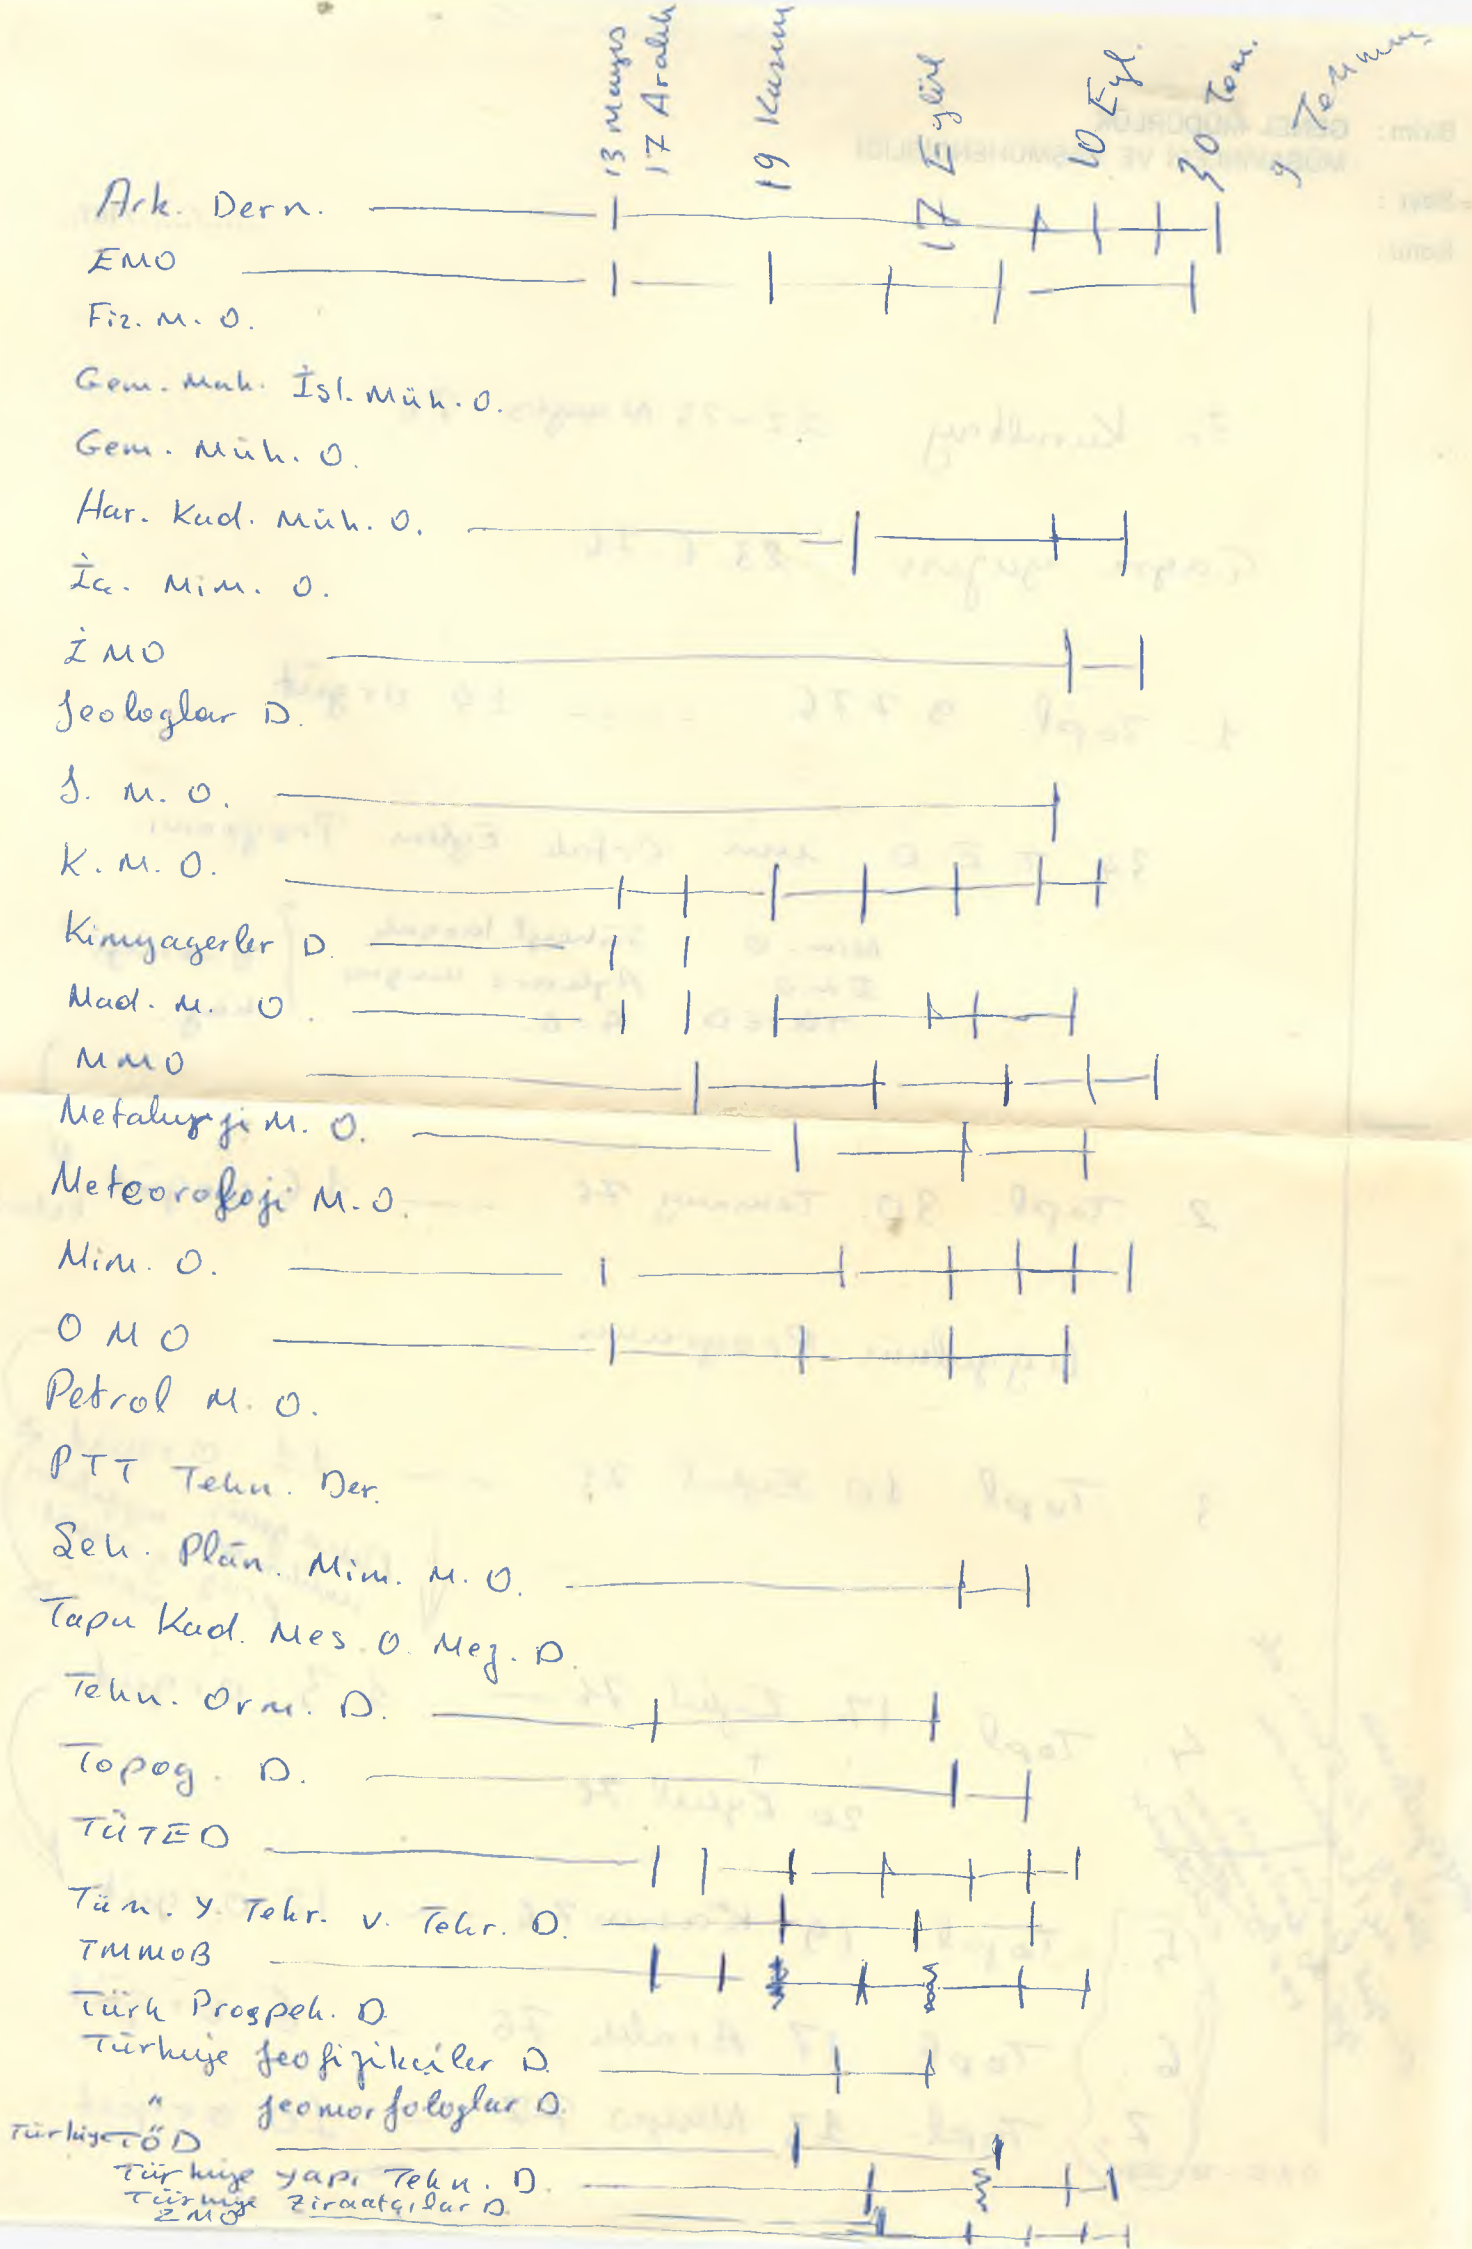 13 Mayıs
17 Aralık
19 Kasım
17 Eylül
10 Eyl.
30 Tem.
9 Temmuz
Ark. Dern.
EMO
Fiz. M. O.
Gem. Mak. İsl. Müh. O.
Gem. Müh. O.
Har. Kad. Müh. O.
İç. Mim. O.
İMO
Jeologlar D.
J. M. O.
K. M. O.
Kimyagerler D.
Mad. M. O.
MMO
Metalurji M. O.
Meteoroloji M. O.
Mim. O.
OMO
Petrol M. O.
PTT Tekn. Der.
Şeh. Plân. Mim. M. O.
Tapu Kad. Mes. O. Mez. D.
Tekn. Orm. D.
Topog. D.
TÜTED
Tüm. Y. Tekr. v. Tekr. D.
TMMOB
Türk Prospek. D.
Türkiye Jeofizikçiler D.
" Jeomorfologlar D.
Türkiye TÖD
Türkiye Yapı Tekn. D.
Türkiye Ziraatçılar D.
ZMO